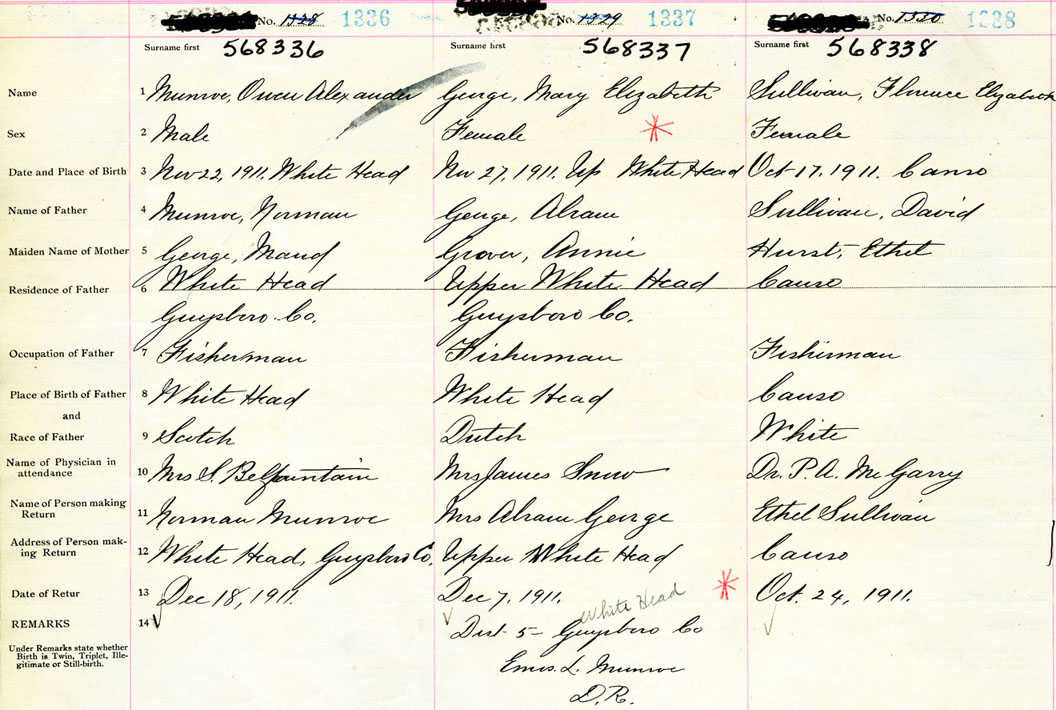 No. 1328 1336 No. 1329 1337 No. 1330 1328
Surname first 568336 Surname first 568337 Surname first 568338
Name 1 Munroe, Owen Alexander George, Mary Elizabeth Sullivan, Florence Elizabeth
Sex 2 Male Female Female
Date and Place of Birth 3 Nov 22, 1911. White Head Nov 27, 1911. Up White Head Oct 17. 1911. Canso
Name of Father 4 Munroe, Norman George, Abram Sullivan, David
Maiden Name of Mother 5 George, Maud Grover, Annie Hurst, Ethel
Residence of Father 6 White Head Upper White Head Canso
Guysboro Co. Guysboro Co.
Occupation of Father 7 Fisherman Fisherman Fisherman
Place of Birth of Father 8 White Head White Head Canso
and
Race of Father 9 Scotch Dutch White
Name of Physician in
attendance 10 Mrs S. Belfountain Mrs James Snow Dr. P. A. McGarry
Name of Person making
Return 11 Norman Munroe Mrs Abram George Ethel Sullivan
Address of Person mak-
ing Return 12 White Head, Guysboro Co. Upper White Head Canso
Date of Retur 13 Dec 18, 1911. Dec 7. 1911. Oct. 24, 1911.
White Head
REMARKS 14 Dist- 5- Guysboro Co
Under Remarks state whether
Birth is Twin, Triplet, Ille-
gitimate or Still-birth.
L. Munroe
D.R.